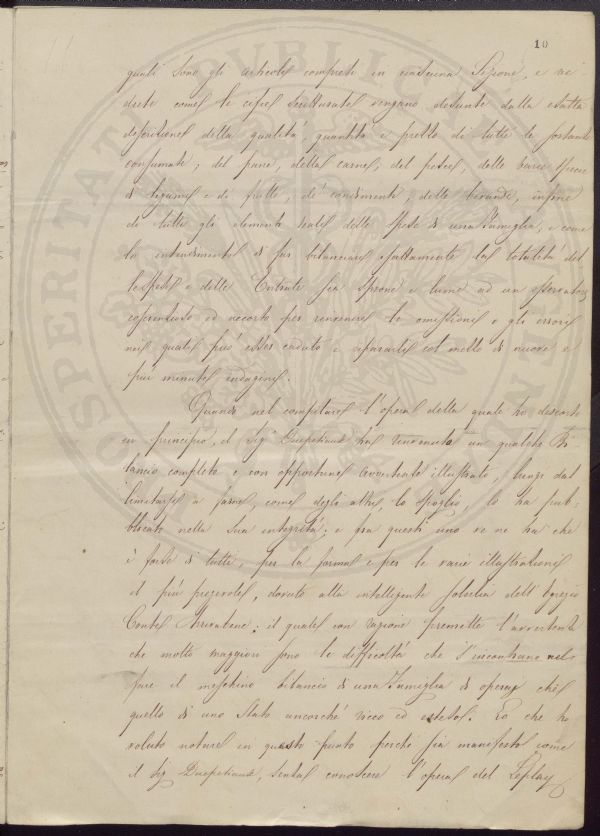 10
quali sono gli articoli compresi in ciascuna Sezione, e ve-
drete come le cifre scritturate vengano desunte dalla esatta
descrizione della qualità, quantità e prezzo di tutte le sostanze
consumate; del pane, della carne, del pesce, delle varie specie
di legumi e di frutta, de' condimenti, delle bevande, infine
di tutti gli elementi reali delle spese di una Famiglia, e come
lo intendimento di far bilanciare esattamente la totalità del
le spese e delle Entrate sia sprone e lume ad un osservatore
coscienzioso ed accorto per rinvenire le omissioni e gli errori
nei quali può esser caduto e ripararli col mezzo di nuove e
più minute indagini.
Quando nel compilare l'opera della quale ho discorso
in principio, il Sig.r Ducpetiaux ha rinvenuto un qualche Bi-
lancio completo e con opportune avvertenze illustrato, lungi dal
limitarsi a farne, come degli altri, lo spoglio, lo ha pub-
blicato nella sua integrità; e fra questi uno ve ne ha che
è forse di tutti, per la forma e per le varie illustrazioni
il più pregevole, dovuto alla intelligente solerzia dell'Egregio
Conte Arrivabene; il quale con ragione premette l'avvertenza
che molto maggiori sono le difficoltà che s'incontrano nel
fare il meschino bilancio di una Famiglia di operaj che
quello di uno Stato ancorché ricco ed esteso. Lo che ho
voluto notare in questo punto perché sia manifesto come
il Sig Ducpetiaux, senza conoscere l'opera del Leplay